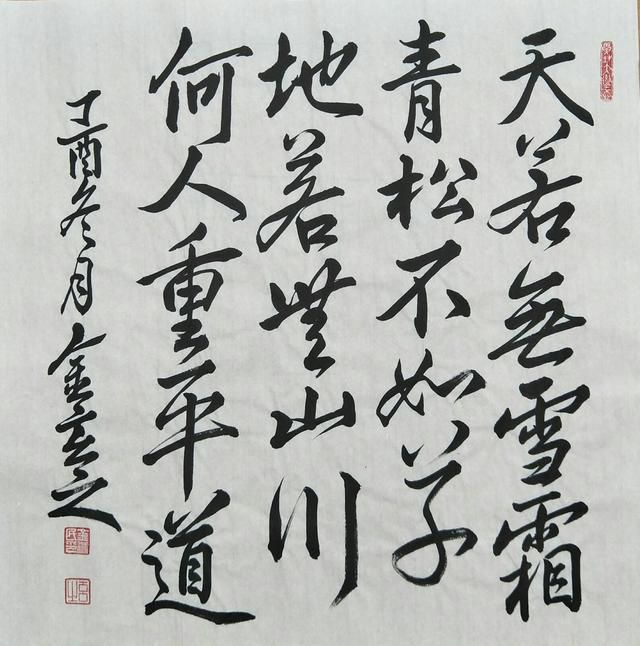 天若無雪霜
青松不如草
地若無山川
何人重平道
丁酉冬月金之